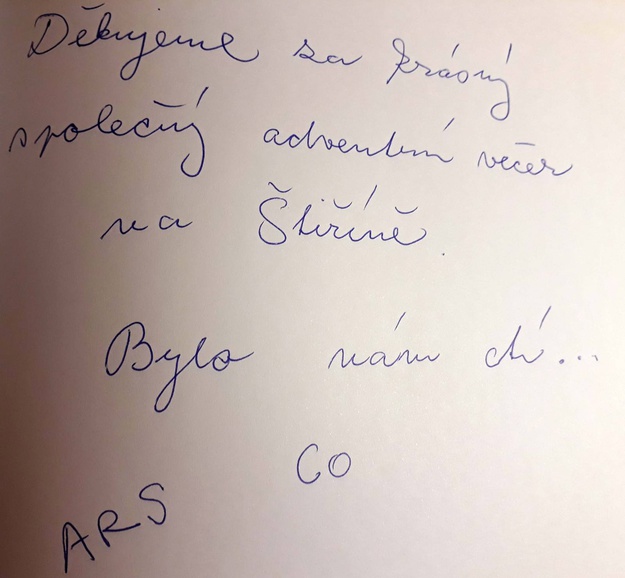 Děkujeme za krásný
společný adventní večer
na Štiříně.
Bylo nám ctí...
CO
ARS